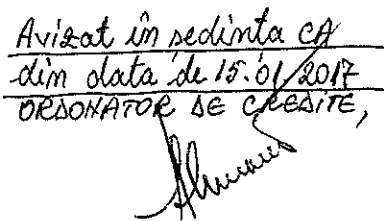 Avizat în sedinta CA
din data de 15.01.2017
ORDONATOR DE CREDITE,